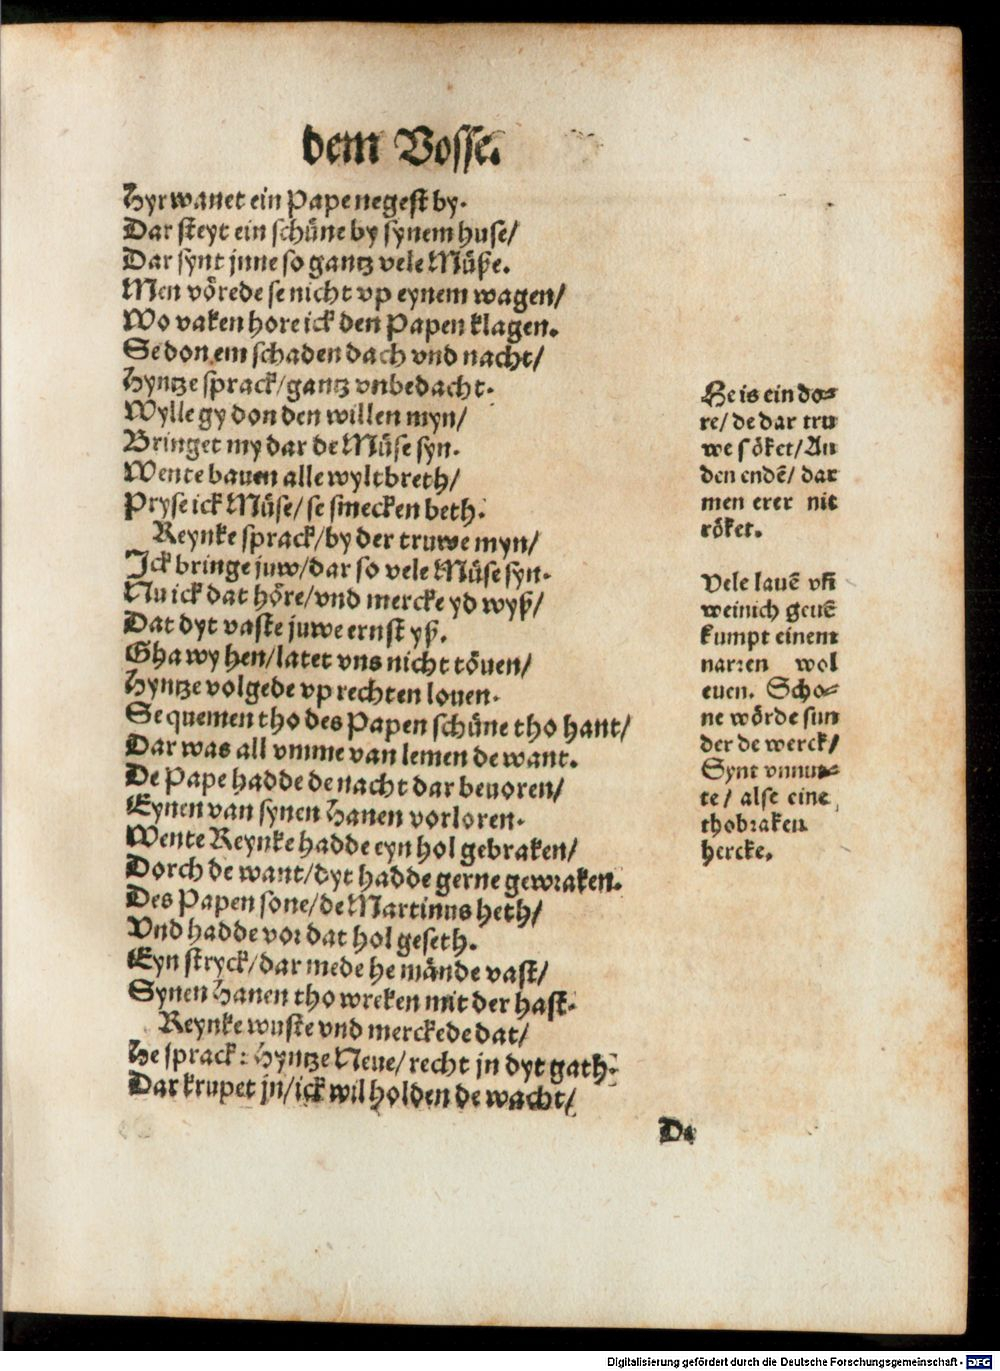 dem Vosse.
Hyr wanet ein Pape negest by.
Dar steyt ein schüne by synem huse/
Dar synt jnne so gantz vele Müße.
Men vörede se nicht vp eynem wagen/
Wo vaken hore ick den Papen klagen.
Se don em schaden dach vnd nacht/
Hyntze sprack/gantz vnbedacht.
Wylle gy don den willen myn/
Bringet my dar de Müse syn.
Wente bauen alle wyltbreth/
Pryse ick Müse/ se smecken beth.
Reynke sprack/by der truwe myn/
Ick bringe juw/dar so vele Müse syn.
Nu ick dat höre/vnd mercke yd wyß/
Dat dyt vaste juwe ernst yß.
Gha wy hen/latet vns nicht töuen/
Hyntze volgede vp rechten louen.
Se quemen tho des Papen schüne tho hant/
Dar was all vmme van lemen de want.
De Pape hadde de nacht dar beuoren/
Eynen van synen Hanen vorloren.
Wente Reynke hadde eyn hol gebraken/
Dorch de want/dyt hadde gerne gewraken.
Des Papen sone/de Martinus heth/
Vnd hadde vor dat hol geseth.
Eyn stryck/dar mede he mände vast/
Synen Hanen tho wreken mit der hast.
Reynke wuste vnd merckede dat/
He sprack: Hyntze Neue/ recht jn dyt gath.
Dar krupet jn/ick wil holden de wacht/
He is ein do-
re/ de dar tru
we söket/An
den endē/ dar
men erer nit
röket.
Vele lauē vñ
weinich geuē
kumpt einem
narren wol
euen. Scho-
ne wörde sun
der de werck/
Synt vnnu-
te/ alse eine
thobraken
hercke.
De
Digitalisierung gefördert durch die Deutsche Forschungsgemeinschaft - DFG